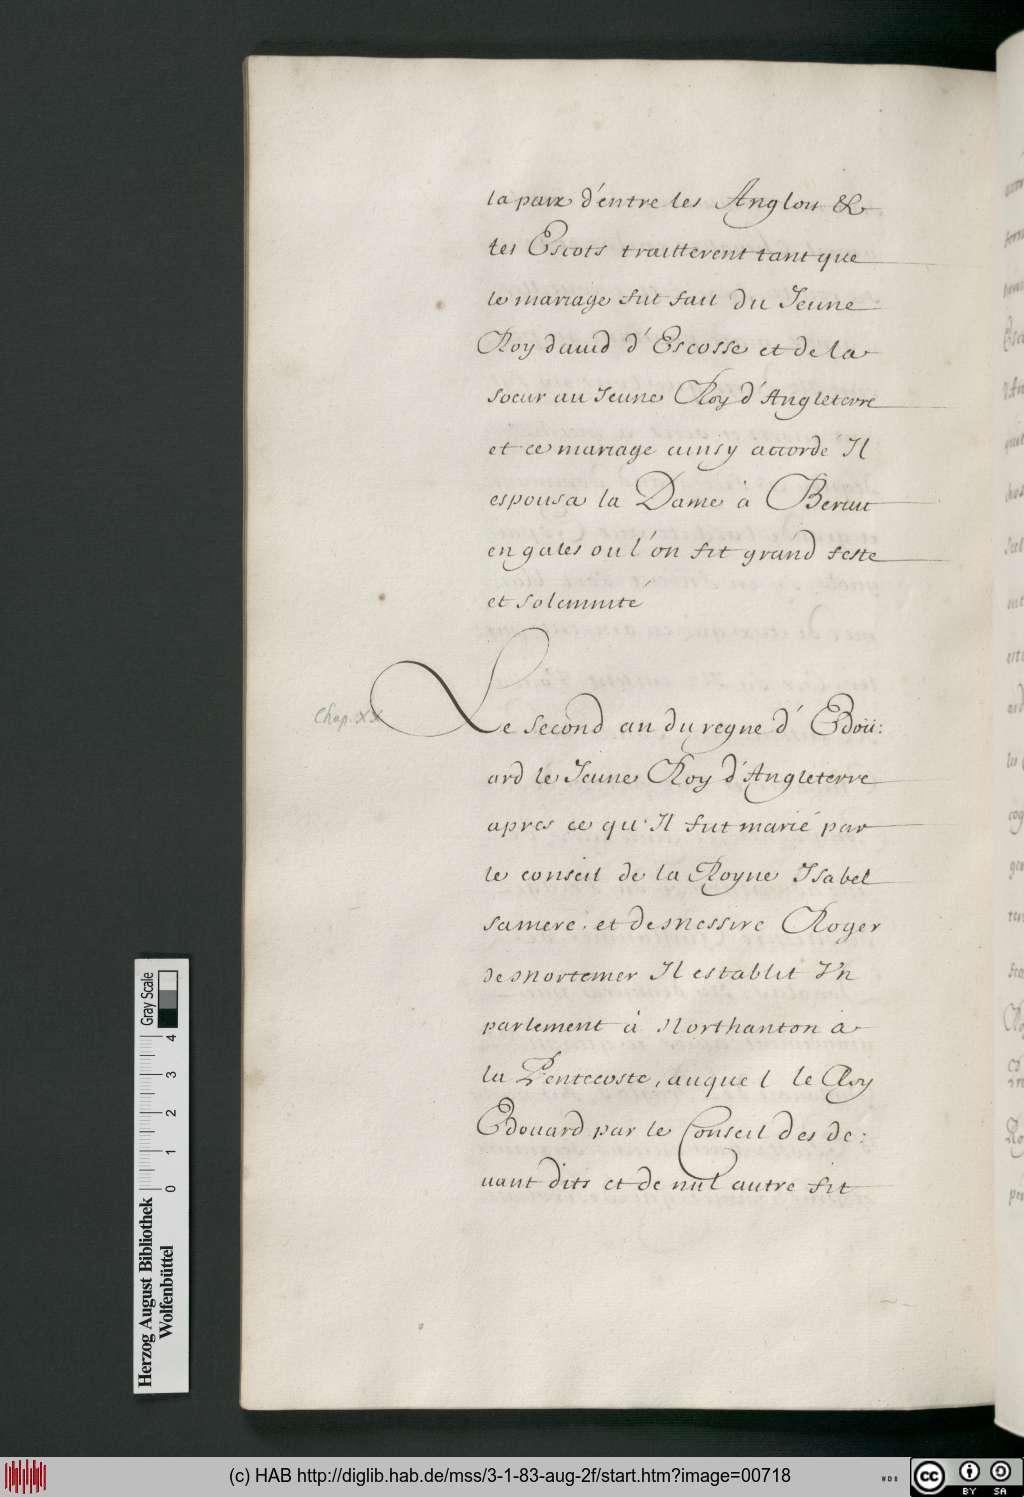 la paix d'entre les Anglois &
les Escots traitterent tant que
le mariage fut fait du Jeune
Roy dauid d'Escosse et de la
soeur au Jeune Roy d'Angleterre
et ce mariage ainsy accordé Il
espousa la Dame à Beruic
en gales ou l'on fit grand feste
et solemnité
Chap. XX
Le second an du regne d'Edoü:
ard le Jeune Roy d'Angleterre
apres ce qu'Il fut marié par
le conseil de la Royne Isabel
sa mere. et de Messire Roger
de Mortemer Il establit Vn
parlement à Northanton a
la Pentecoste, auquel le Roy
Edouard par le Conseil des de:
uant dits et de nul autre fit
Gray Scale
0 1 2 3 4
Herzog August Bibliothek
Wolfenbüttel
(c) HAB http://diglib.hab.de/mss/3-1-83-aug-2f/start.htm?image=00718
WDB
cc BY SA